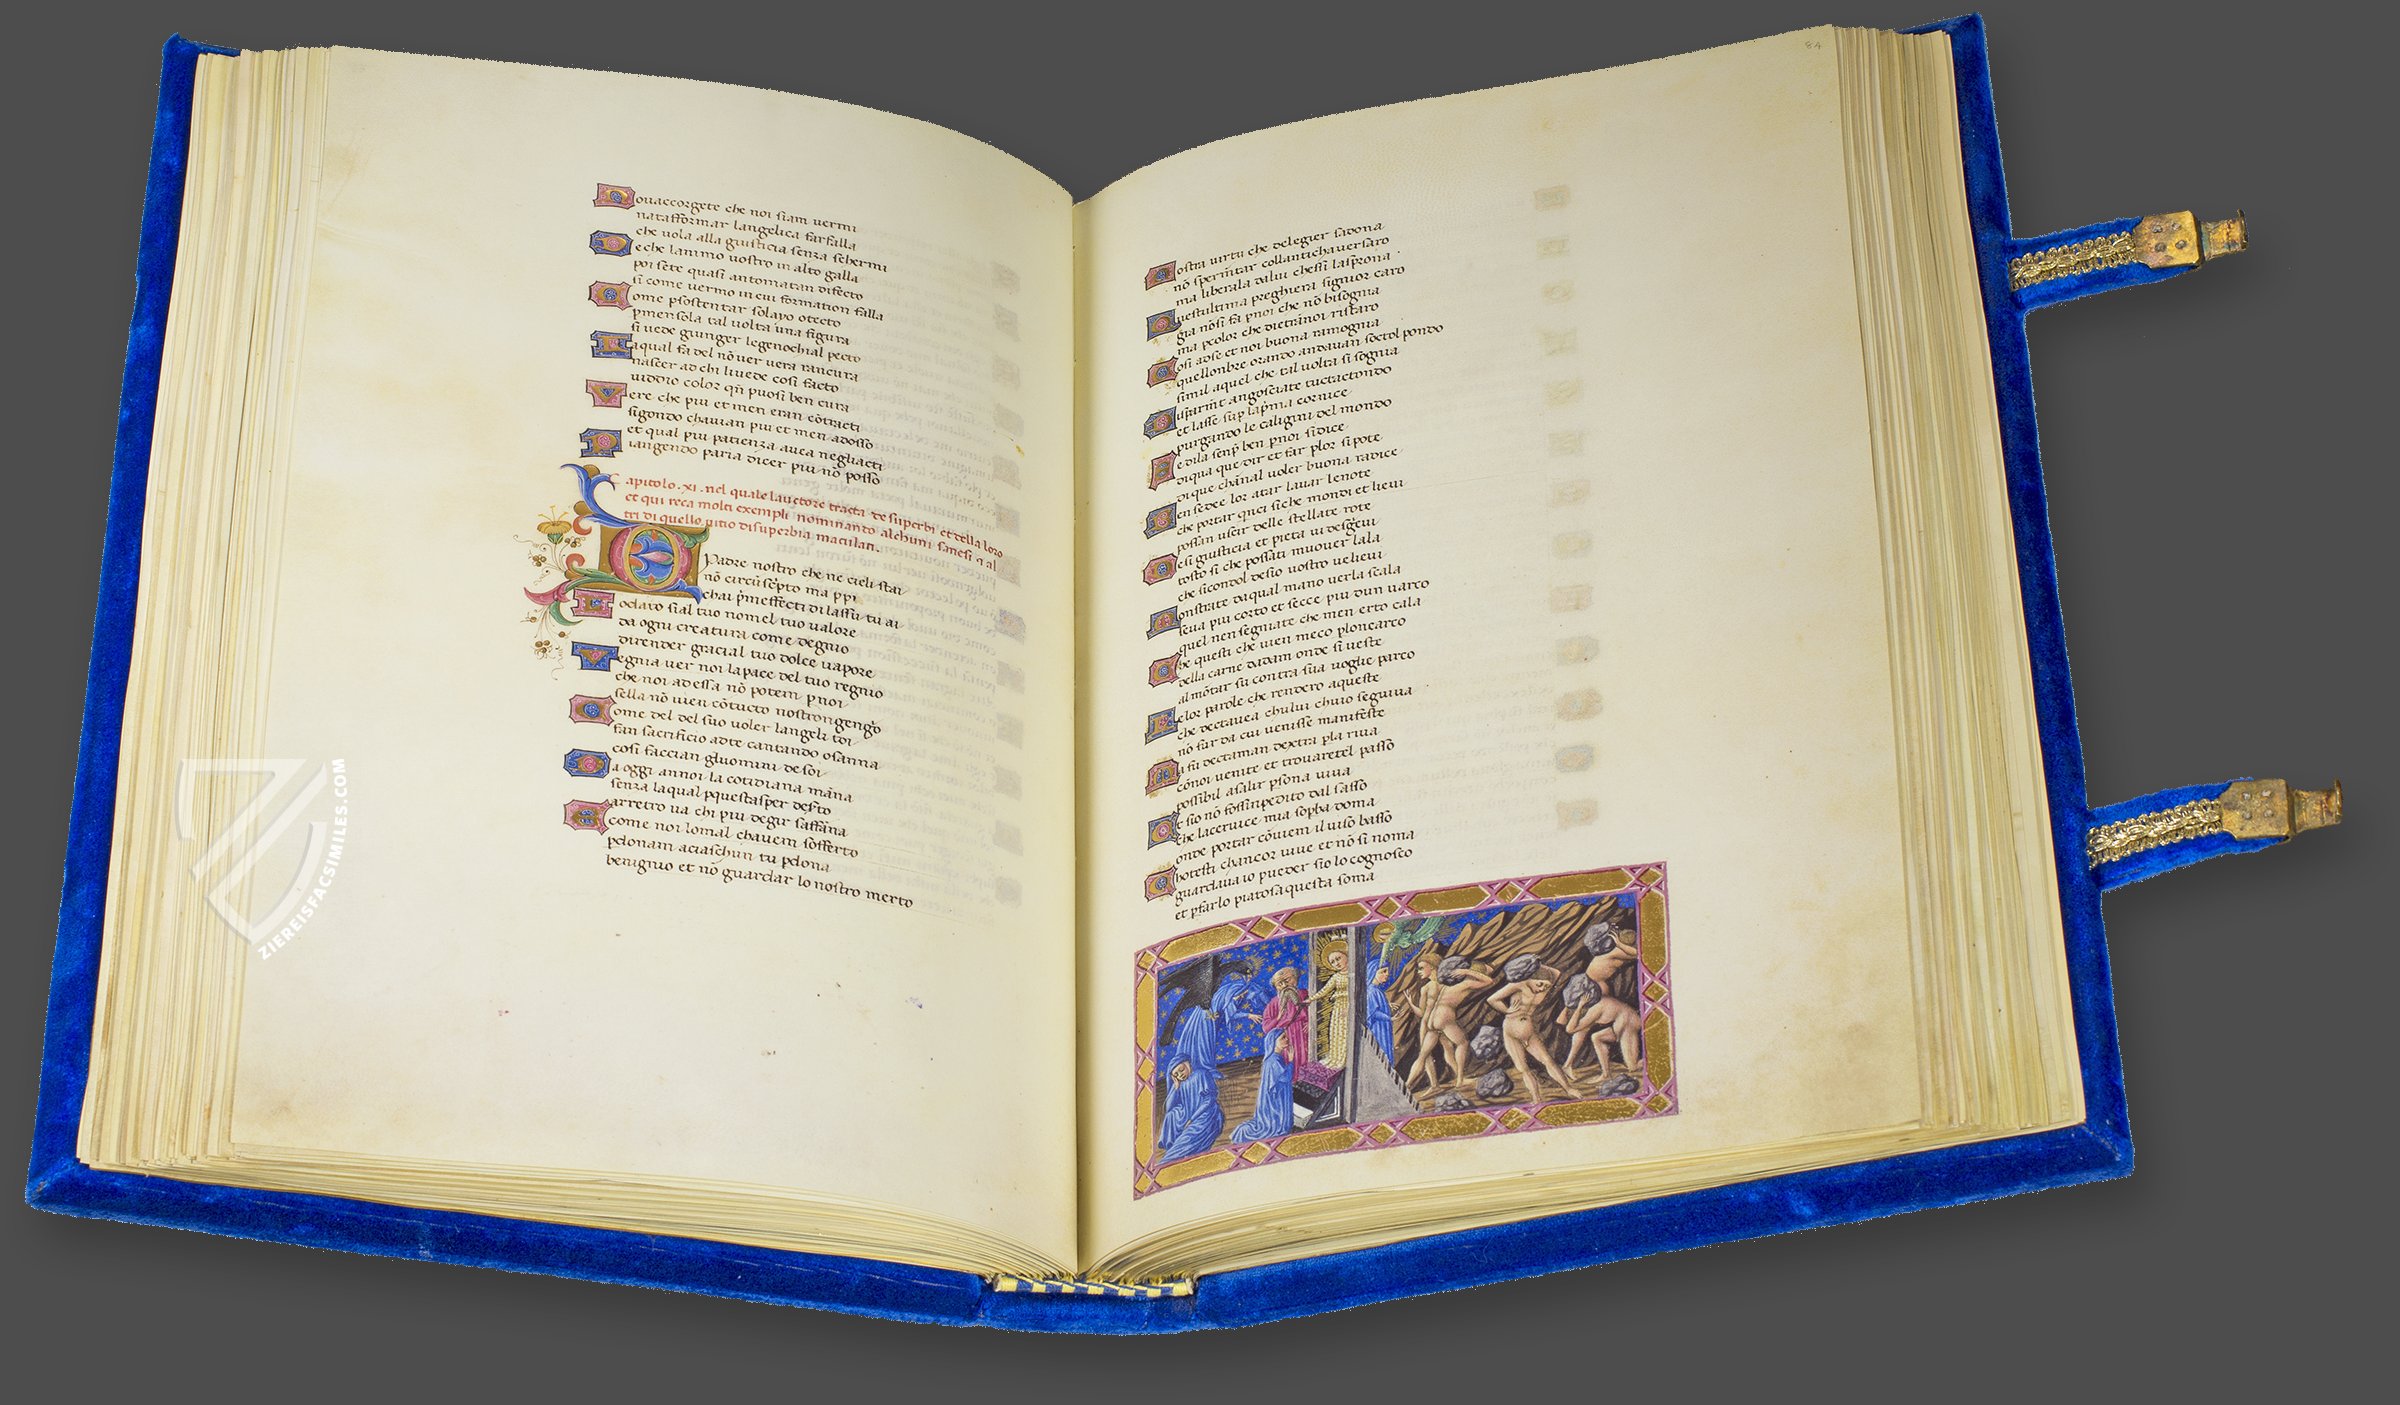 ouaccorgete che noi siam uermi
natafformar langelica farfalla
che uola alla giusticia senza schermi
e che lanimo uostro in alto galla
poi sete quasi antomatan difecto
si come uermo in cui formation falla
ome psostentar solayo otecto
pmensola tal uolta una figura
si uede giunger legenochial pecto
aqual fa del nō uer uera rancura
nascer ad chi liuede cosi facto
uiddio color qñ puosi ben cura
ere che piu et men eran cōtracti
sigondo chauian piu et men adosso
et qual piu patienza auea negliacti
iangendo paria dicer piu nō posso
Capitolo .xi. nel quale lauctore tracta de superbi et della loro
et qui reca molti exempli nominando alchuni sanesi
tri di quello uitio disuperbia maculati.
O Padre nostro che ne cieli stai
nō circūscpto ma p pi
chai pmeffecti di lassu tu ai
L odato sial tuo nomel tuo ualore
da ogni creatura come degnio
dirender gracial tuo dolce uapore
V egnia uer noi lapace del tuo regnio
che noi ad essa nō potem p noi
sella nō uien cōtucto nostrongengo
ome del del suo uoler langeli toi
fan sacrificio adte cantando osanna
cosi faccian gluomini de soi
a oggi annoi la cotidiana māna
senza laqual pquestasper desto
arretro ua chi piu degir saffāna
come noi lomal chauem sofferto
pdonam aciaschun tu pdona
benignio et nō guardar lo nostro merto
84
ostra uirtu che delegier sadona
nō spermtar collantichauersaro
ma liberala dalui chessi lasprona
uestultima preghiera signior caro
gia nōsi fa p noi che nō bisognia
ma pcolor che dietranoi ristaro
osi adse et noi buona ramognia
quellonbre orando andauan soctol pondo
simil aquel che tal uolta si sognia
isparmt angosciate tuctactondo
et lasse sup lapma cornice
purgando le caligini del mondo
e dila senp ben p noi sidice
diqua que dir et far plor si pote
di que chānal uoler buona radice
en sedee lor atar lauar lenote
che portar quci siche mondi et lieui
possan uscir delle stellate rote
e si giusticia et pieta ui desgeui
tosto si che possati muouer lala
che sicondol desio uostro uelieui
onstrate daqual mano uerla scala
seua piu corto et secce piu dun uarco
quel nen segniate che men erto cala
he questi che uien meco ploncarco
della carne dadam onde si ueste
al mōtar su contra sua uoglie parco
e lor parole che rendero aqueste
che dectauea chului chuio seguiua
nō fur da cui uenisse manifeste
a fu dectaman dextra pla riua
cōnoi uenite et trouaretel passo
possibil asalir psona uiua
t sio nō fossinpedito dal sasso
che laceruice mia sopba doma
onde portar cōuiem il uiso basso
hotesti chancor uiue et nō si noma
guardaua io pueder sio lo cognosco
et pfarlo piatosa questa soma
ZIEREISFACSIMILES.COM